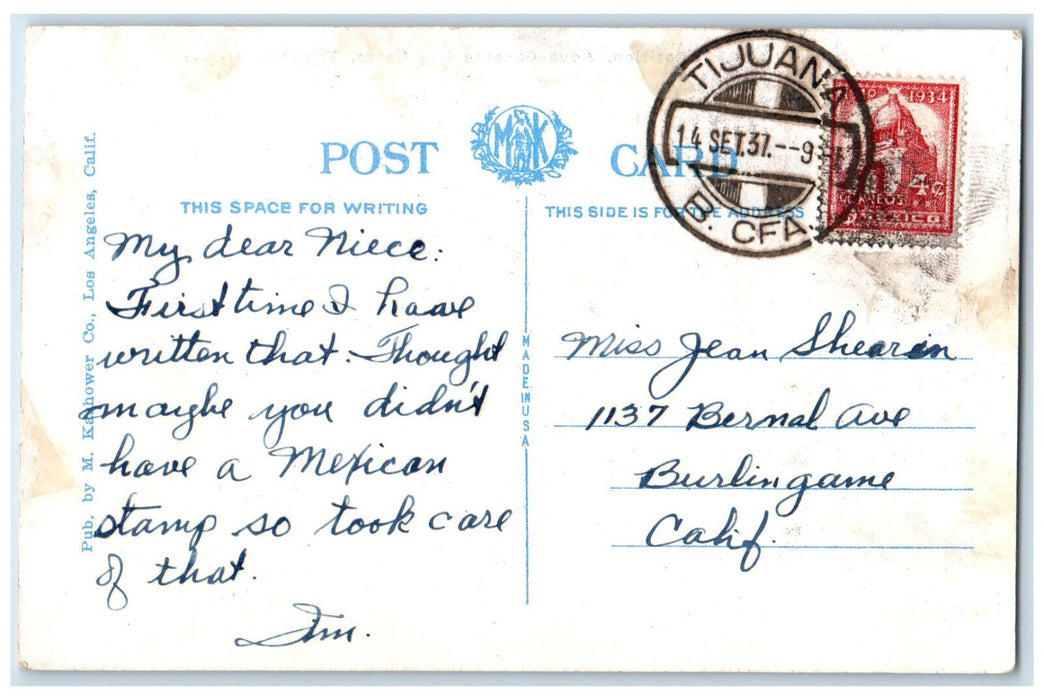 POST MK CARD
THIS SPACE FOR WRITING
THIS SIDE IS FOR THE ADDRESS
TIJUANA
14 SET.37.--9
B. CFA.
1934
4c
CORREOS
MEXICO
Pub. by M. Kashower Co., Los Angeles, Calif.
My dear Niece:
First time I have
written that. Thought
maybe you didn't
have a Mexican
stamp so took care
of that.
Jim.
MADE IN USA
Miss Jean Shearin
1137 Bernal Ave
Burlingame
Calif.